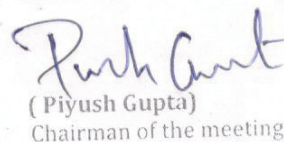 ( Piyush Gupta)
Chairman of the meeting